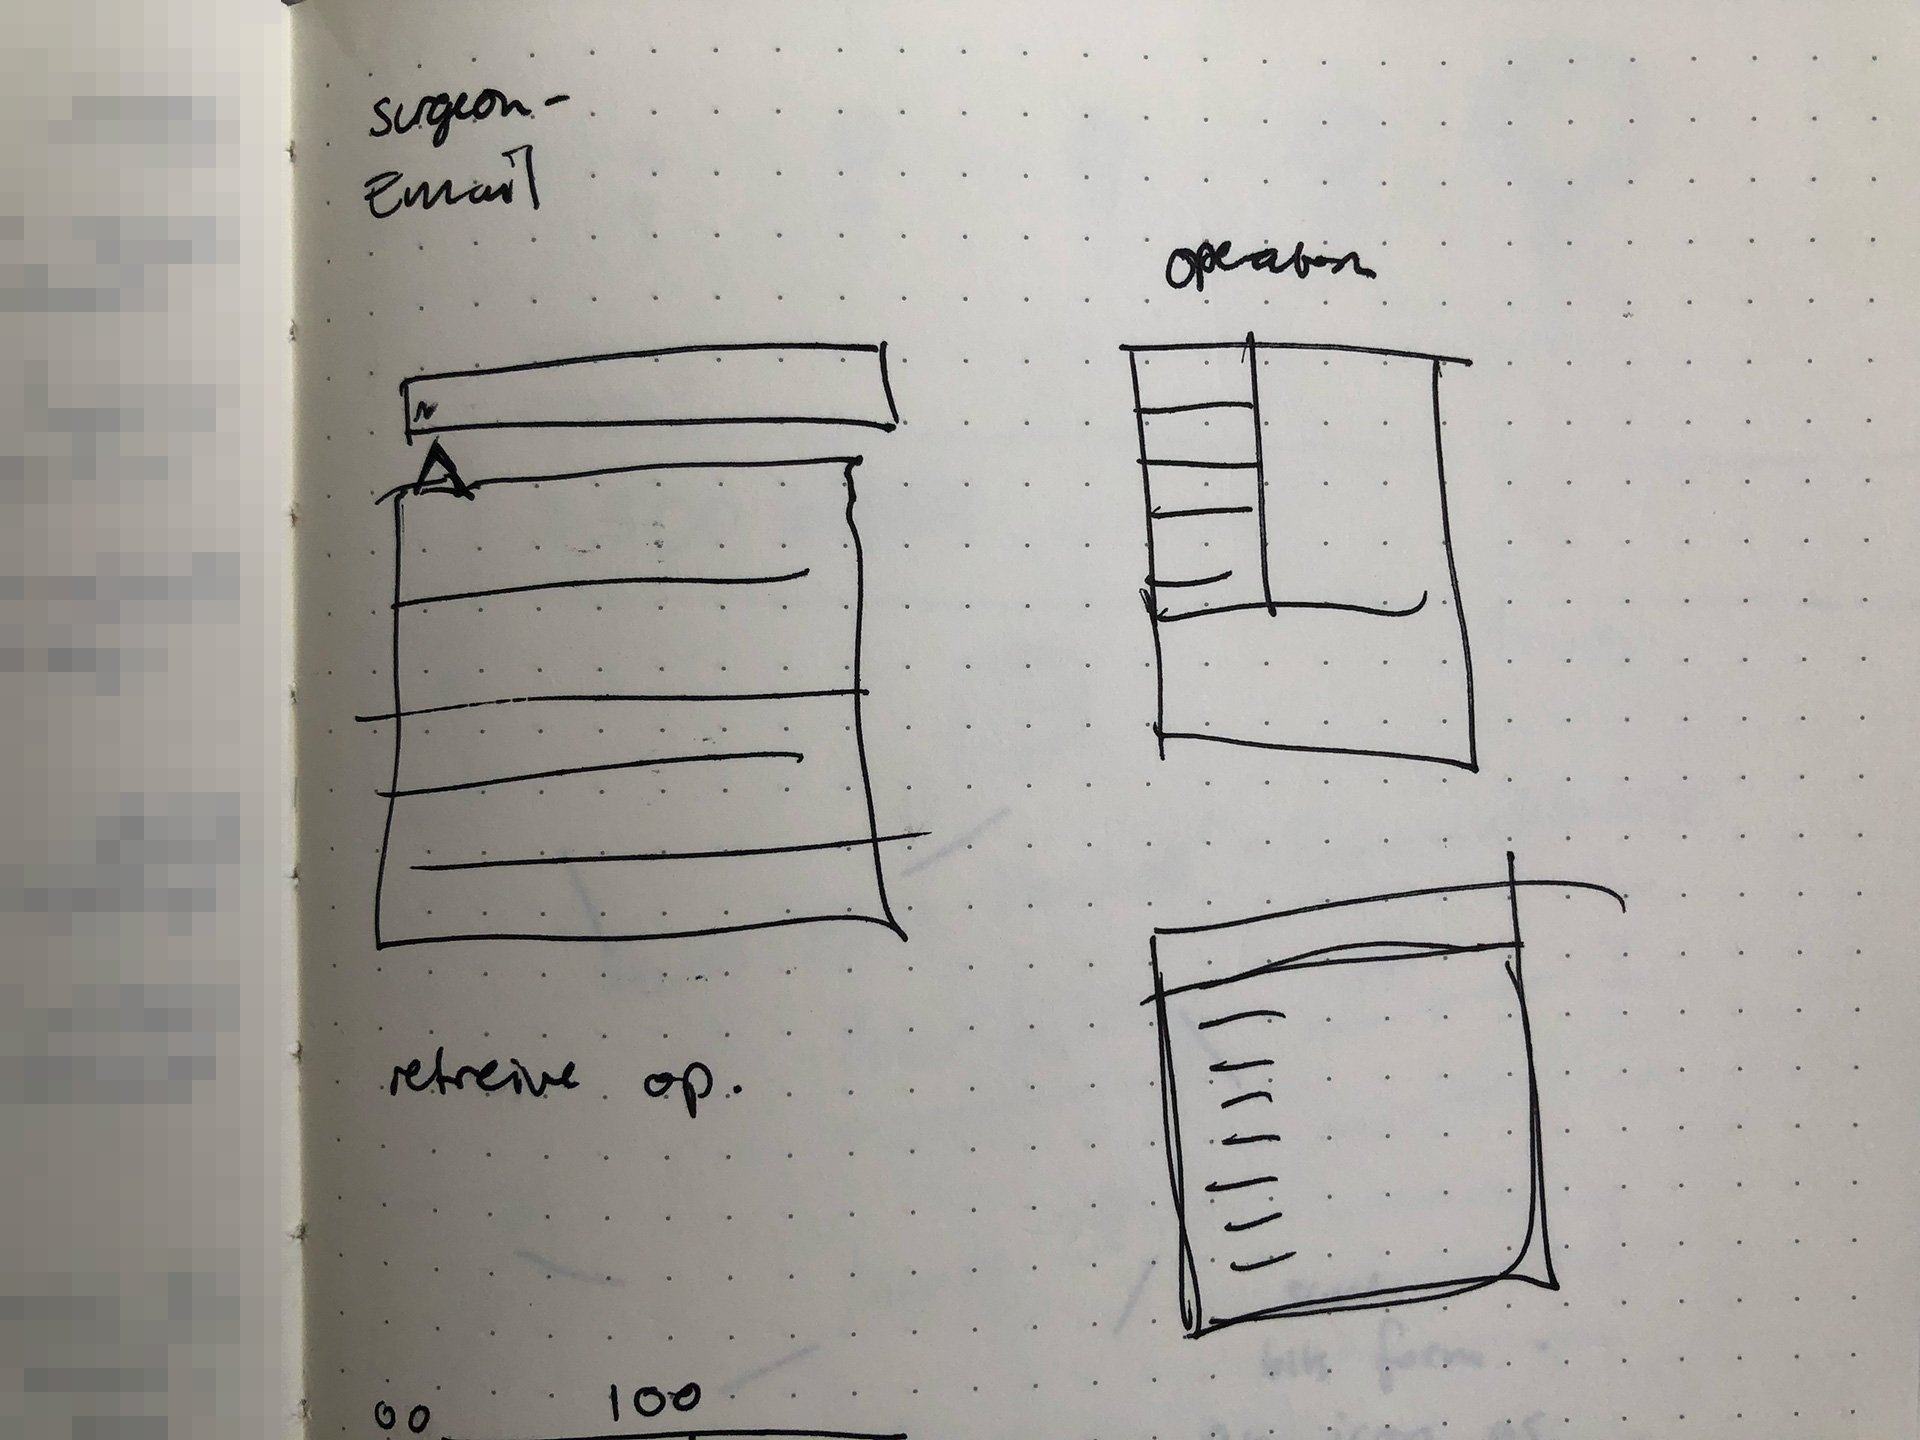 surgeon -
Email
operation
retreive op.
00 100